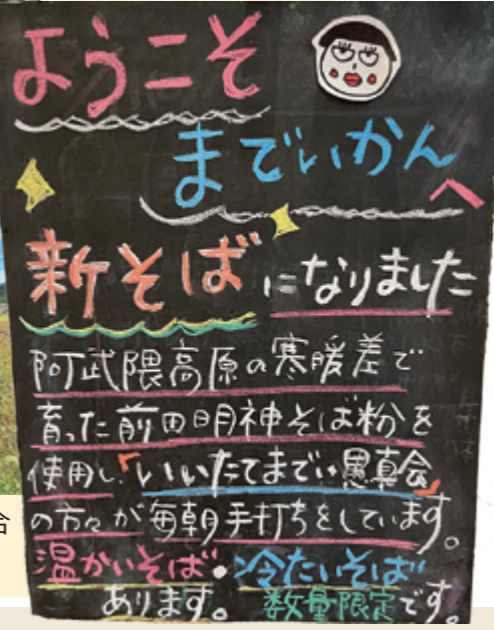 ようこそ
までいかんへ
新そばになりました
阿武隈高原の寒暖差で
育った前田明神そば粉を
使用し「いいたてまでい愚真会」
の方々が毎朝手打ちをしています。
温かいそば・冷たいそば
あります。数量限定です。
合